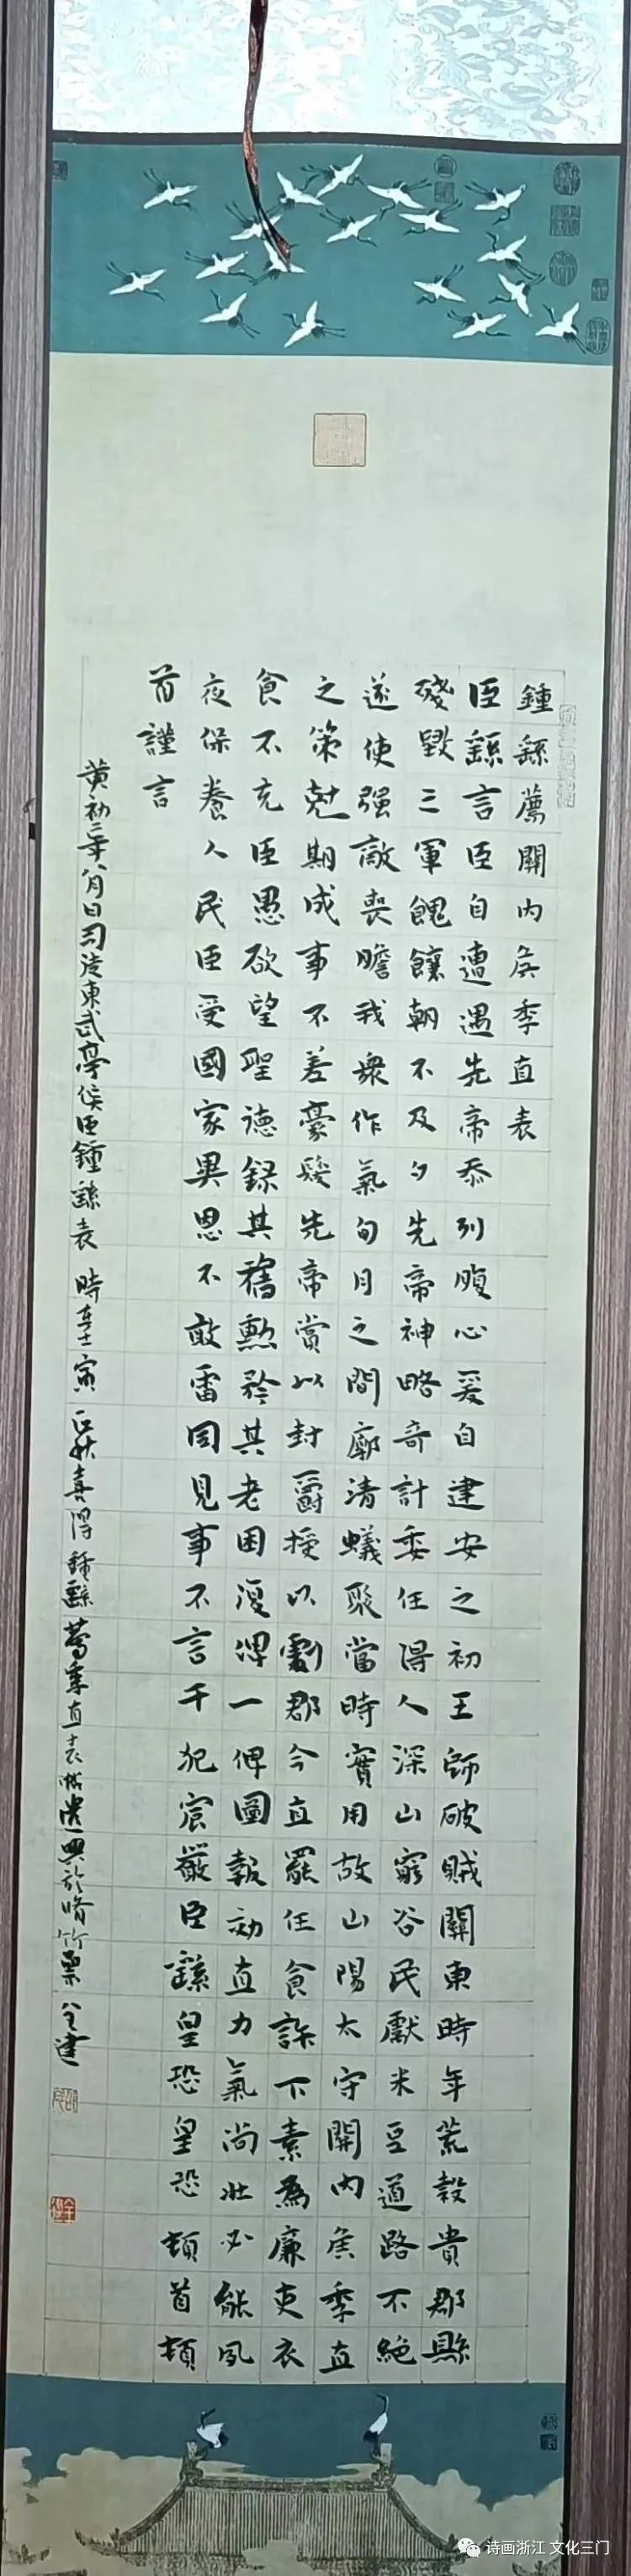 鍾繇薦關內侯季直表
臣繇言臣自遭遇先帝忝列腹心爰自建安之初王師破賊關東時年荒穀貴郡縣
殘毀三軍餽饟朝不及夕先帝神略奇計委任得人深山窮谷民獻米豆道路不絕
遂使強敵喪膽我衆作氣旬月之間廓清蟻聚當時實用故山陽太守關內侯季直
之策剋期成事不差豪髮先帝賞以封爵授以劇郡今直罷任食許下素為廉吏衣
食不充臣愚欲望聖德錄其舊勳矜其老困復俾一俾圖報効直力氣尚壯必能夙
夜保養人民臣受國家異恩不敢雷同見事不言干犯宸嚴臣繇皇恐皇恐頓首頓
首謹言
黃初二年八月日司徒東武亭侯臣鍾繇表 時壬寅 秋喜得鍾繇薦季直表 興於 竹 全達
诗画浙江 文化三门